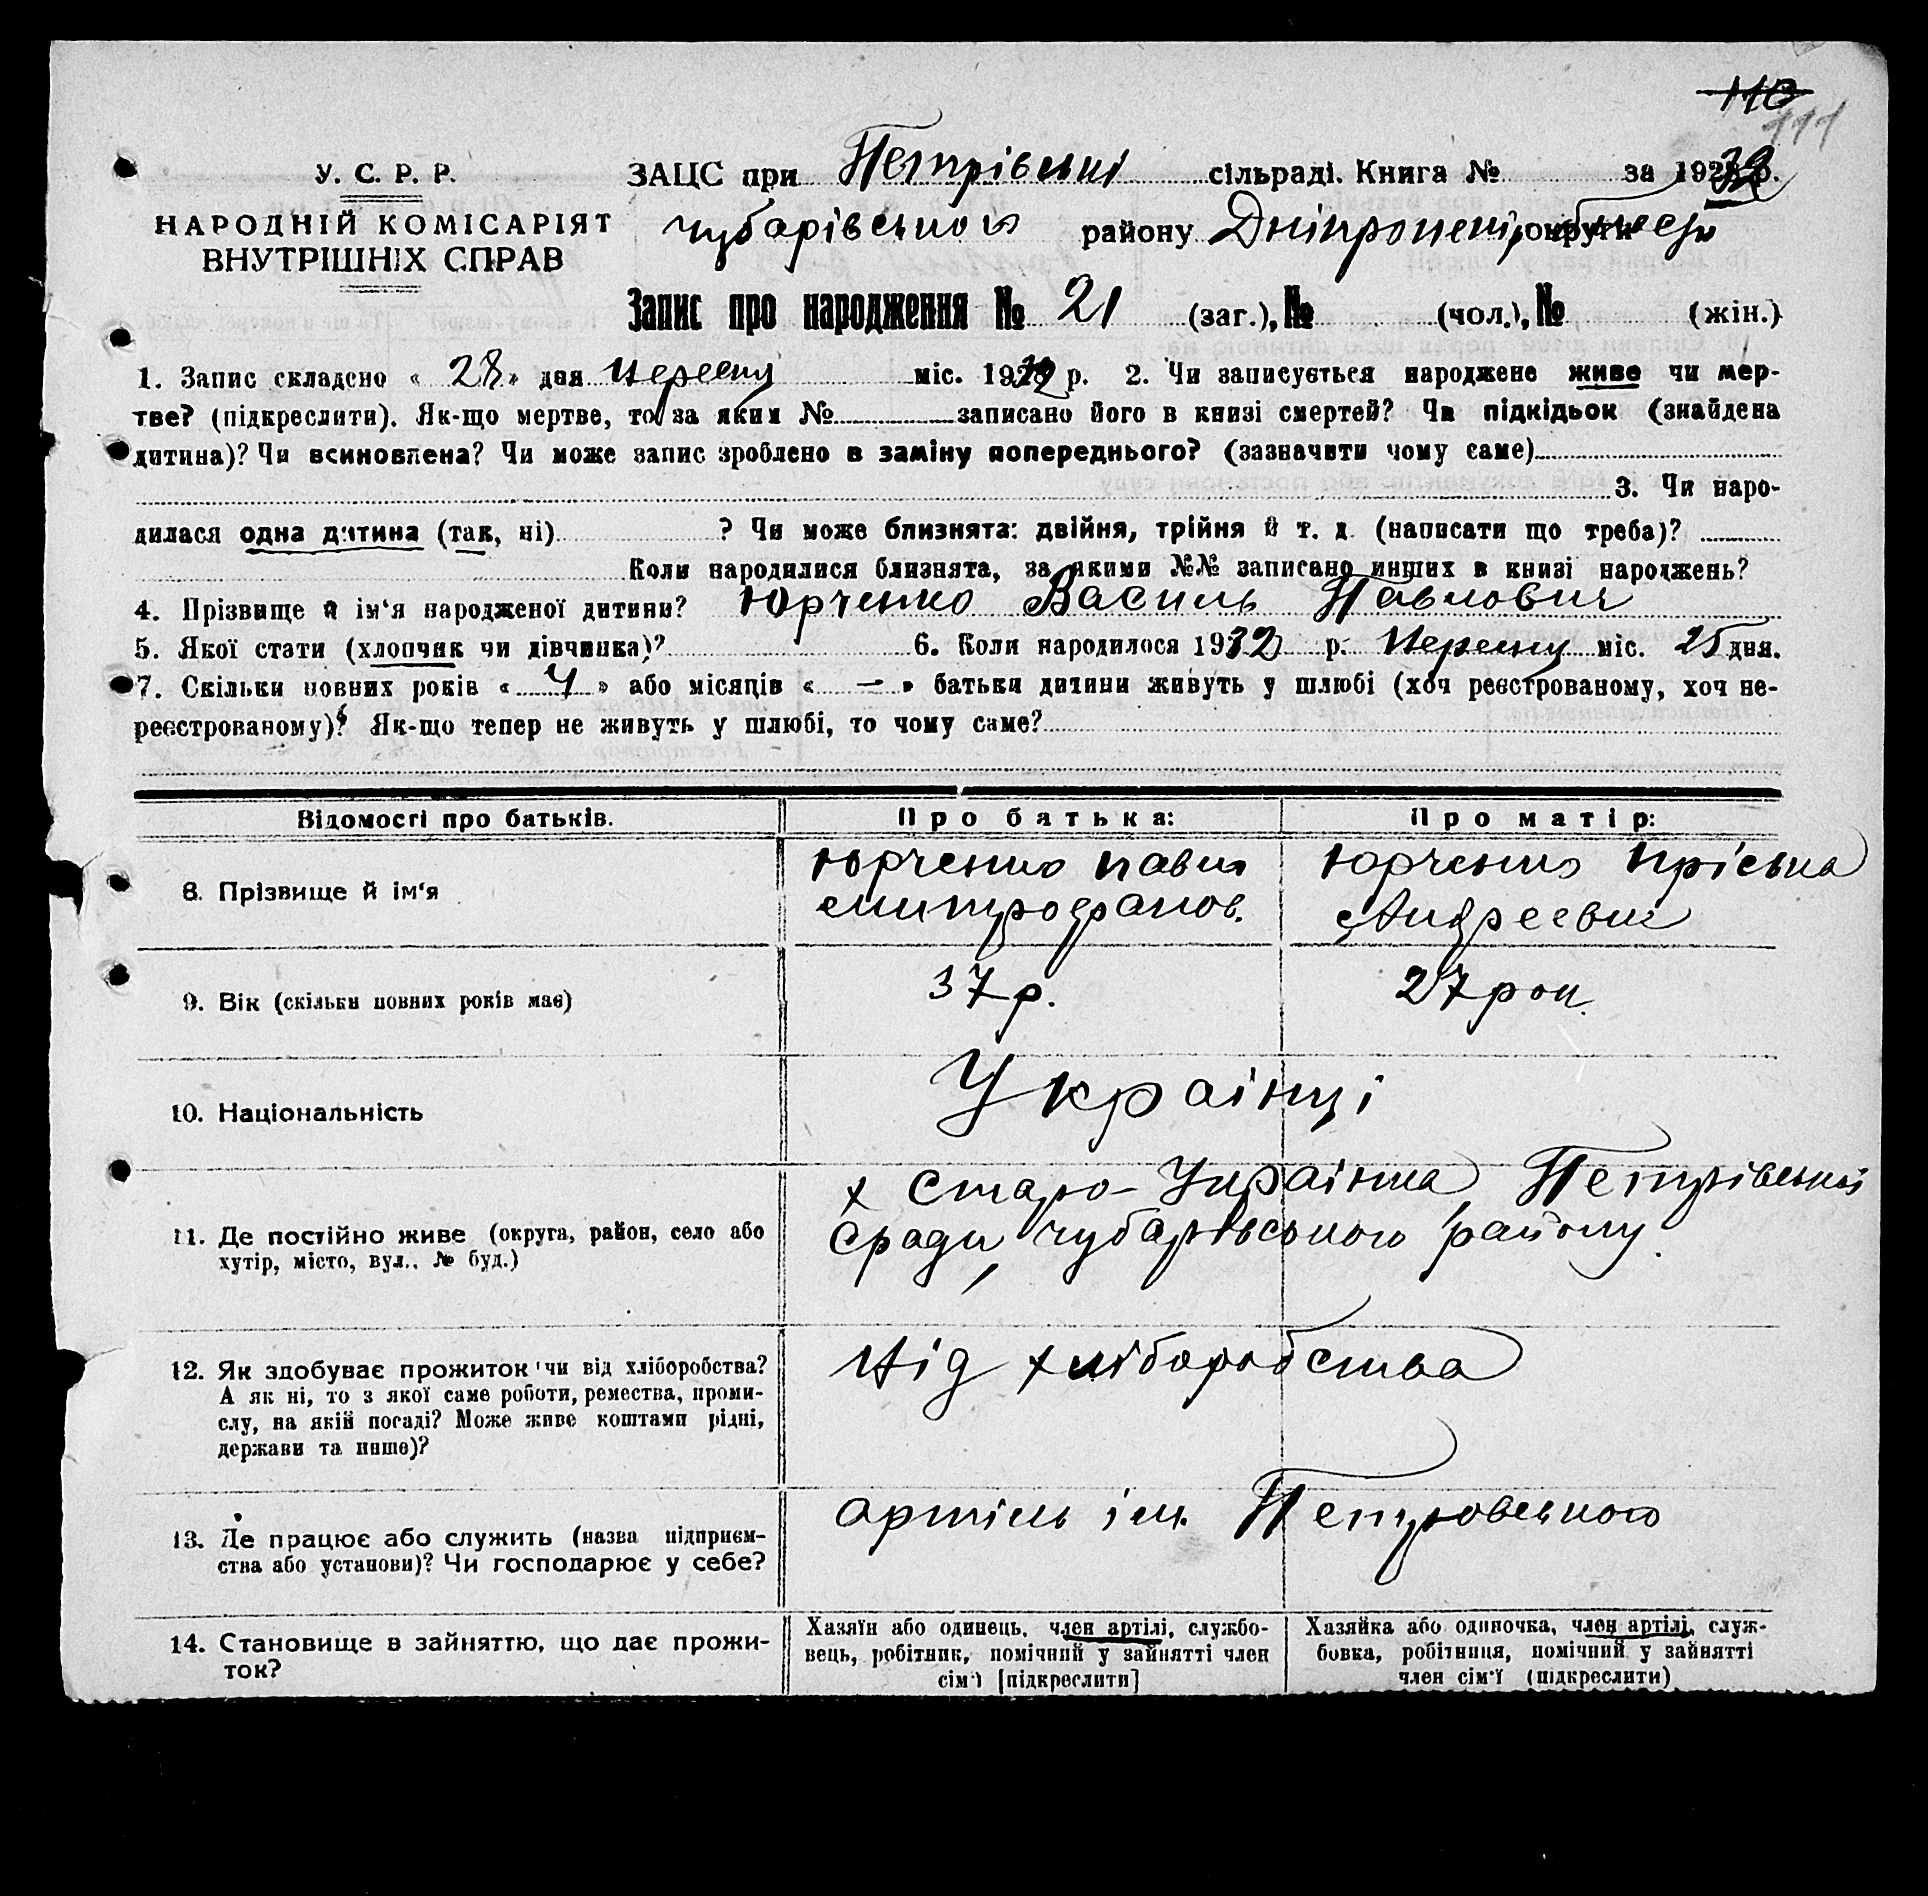 110
111
У. С. Р. Р.
НАРОДНІЙ КОМІСАРІЯТ
ВНУТРІШНІХ СПРАВ
ЗАЦС при Петрівські сільраді. Книга № за 1932 р.
Чубарівського району Дніпропет. округи
Запис про народження № 21 (заг.), № (чол.), № (жін.)
1. Запис складено « 28 » дня вересня міс. 1932 р. 2. Чи записується народжене живе чи мер-
тве? (підкреслити). Як-що мертве, то за яким № записано його в книзі смертей? Чи підкідьок (знайдена
дитина)? Чи всиновлена? Чи може запис зроблено в заміну попереднього? (зазначити чому саме)
3. Чи наро-
дилася одна дитина (так, ні) ? Чи може близнята: двійня, трійня й т. д. (написати що треба)?
Коли народилися близнята, за якими №№ записано инших в книзі народжень?
4. Прізвище й ім'я народженої дитини? Юрченко Василь Павлович
5. Якої стати (хлопчик чи дівчинка)? 6. Коли народилося 1932 р. вересня міс. 25 дня.
7. Скільки повних років « 4 » або місяців « — » батьки дитини живуть у шлюбі (хоч реєстрованому, хоч не-
реєстрованому)? Як-що тепер не живуть у шлюбі, то чому саме?
Відомості про батьків. Про батька: Про матір:
8. Прізвище й ім'я
Юрченко Павло
Митрофанов.
Юрченко
Андреевна
9. Вік (скільки повних років має) 37 р. 27 рок.
10. Національність Українці
11. Де постійно живе (округа, район, село або
хутір, місто, вул., № буд.)
х Старо-Українка Петрівської
с ради, Чубарівського району.
12. Як здобуває прожиток чи від хліборобства?
А як ні, то з якої саме роботи, ремества, проми-
слу, на якій посаді? Може живе коштами рідні,
держави та инше)?
Від хліборобства
13. Де працює або служить (назва підприєм-
ства або установи)? Чи господарює у себе?
артіль ім. Петровського
14. Становище в зайняттю, що дає прожи-
ток?
Хазяїн або одинець, член артілі, службо-
вець, робітник, помічний у зайнятті член
сім'ї [підкреслити]
Хазяйка або одиночка, член артілі, служ-
бовка, робітниця, помічний у зайнятті
член сім'ї (підкреслити)